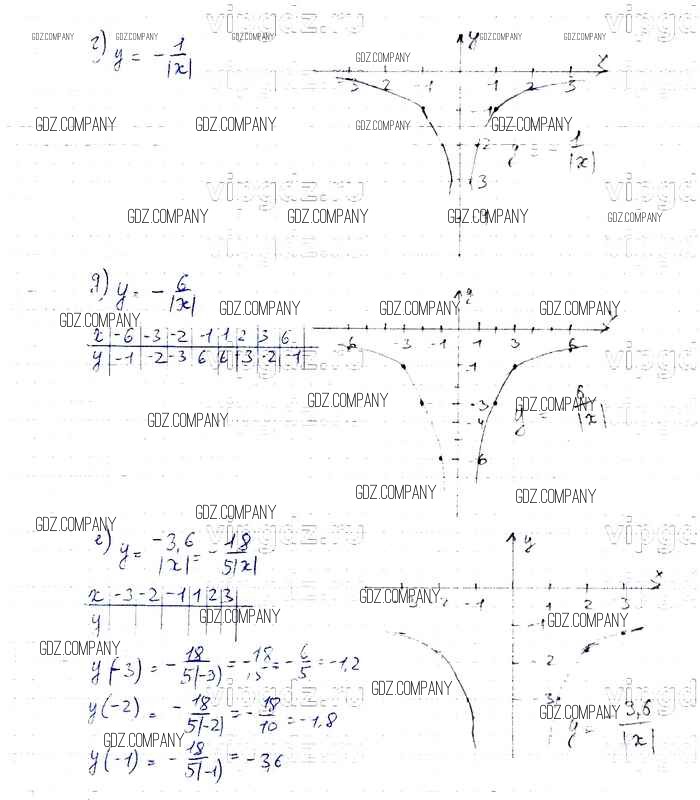 г) y = - 1/|x|
y
x
-3 2 -1 1 2 3
-1
-2
-3
y = - 1/|x|
д) y = - 6/|x|
x -6 -3 -2 -1 1 2 3 6
y -1 -2 -3 6 6 -3 -2 -1
y
-6 -3 -1 1 3 6
-1
-3
-4
-6
y = 6/|x|
е) y = -3,6/|x| = - 18/5|x|
x -3 -2 -1 1 2 3
y
y(-3) = - 18/5|-3| = - 18/15 = - 6/5 = -1,2
y(-2) = - 18/5|-2| = - 18/10 = -1,8
y(-1) = - 18/5|-1| = -3,6
y
x
-1 1 2 3
-1
-2
3
y = - 3,6/|x|
GDZ.COMPANY
vipgdz.ru